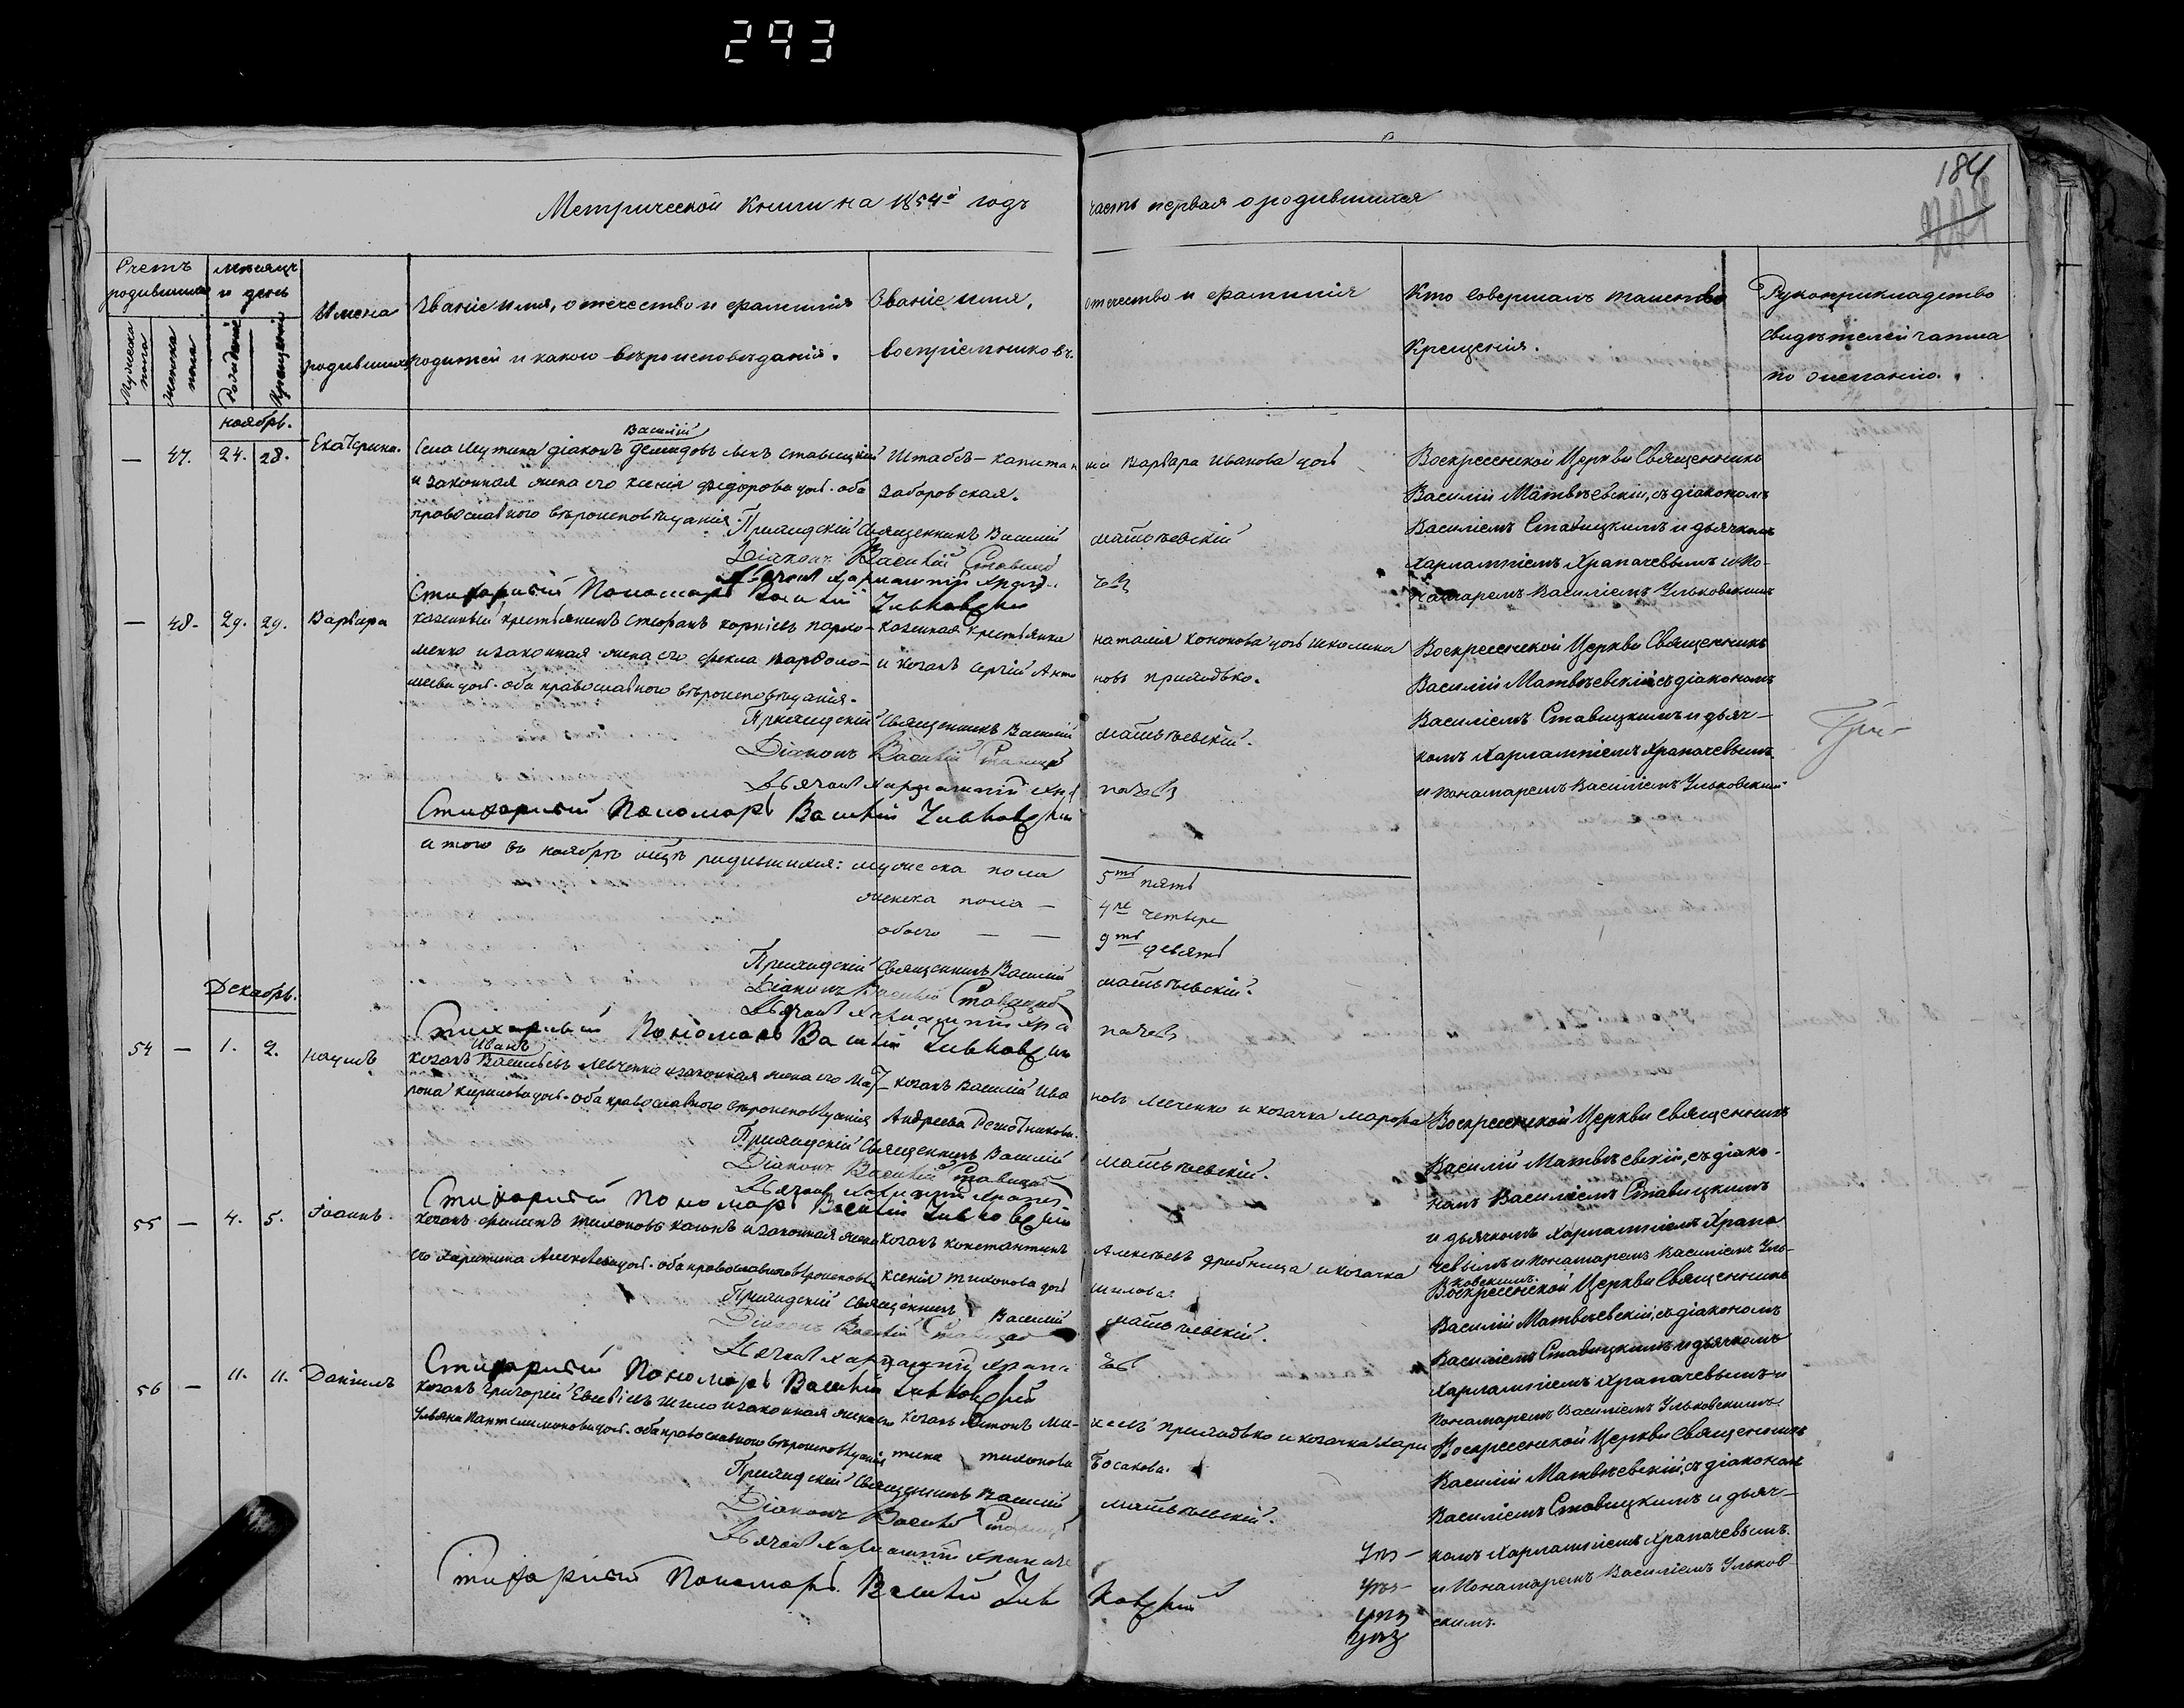 293
184
Метрической книги на 1854й годъ часть первая о родившихся
Счетъ родившихся
Мѣсяцъ и день
Мужеска пола
Женска пола
Рождения
Крещения
Имена родившихся
Званіе имя, отечество и фамилія родителей и какого вѣроисповѣданія.
Званіе имя, отечество и фамилія воспріемниковъ.
Кто совершалъ таинство крещенія.
Рукоприкладство свидѣтелей записи по желанію.
ноябрь.
— 47. 24. 28. Екатерина.
Василій
Села діаконъ Демидовъ сынъ Ставицкій
и законная жена его Ксенія Федорова дочь. оба
православного вѣроисповѣданія.
Штабсъ-капитанша Варвара Иванова дочь
Заборовская.
Воскресенской Церкви Священникъ
Василій Матвѣевскій, съ діакономъ
Василіемъ Ставицкимъ и дьячкомъ
Харлампіемъ Храпачевымъ и По-
намаремъ Василіемъ Ульковскимъ
Приходскій Священникъ Василій Матвѣевскій
Діаконъ Василій Ставицкій
Дьячокъ Харлампій Храпачевъ
Стихарный Пономарь Василій Ульковскій
— 48. 29. 29. Варвара
казенный крестьянинъ Стефанъ Корніевъ Пархо-
менко и законная жена его Фекла Варфоло-
меева дочь. оба православного вѣроисповѣданія.
казенная крестьянка Наталія Кононова дочь Школина
и козакъ Сергій Антоновъ Приходько.
Воскресенской Церкви Священникъ
Василій Матвѣевскій съ діакономъ
Василіемъ Ставицкимъ и дьяч-
комъ Харлампіемъ Храпачевымъ
и Понамаремъ Василіемъ Ульковскимъ
Приходскій Священникъ Василій Матвѣевскій.
Діаконъ Василій Ставицкій
Дьячокъ Харлампій Храпачевъ
Стихарный Пономарь Василій Ульковскій
итого въ ноябрѣ мцѣ родившихся: мужеска пола 5ть пять
женска пола — 4ре четыре
обоего — — 9ть девять
Приходскій Священникъ Василій Матвѣевскій.
Діаконъ Василій Ставицкій
Дьячокъ Харлампій Храпачевъ
Стихарный Пономарь Василій Ульковскій
Декабрь.
54 — 1. 2. Наумъ
Иванъ
козакъ Васильевъ Левченко и законная жена его Мат-
рона Кирилова дочь. оба православного вѣроисповѣданія
козакъ Василій Ивановъ Левченко и козачка Марфа
Андреева
Воскресенской Церкви Священникъ
Василій Матвѣевскій, съ діако-
номъ Василіемъ Ставицкимъ
и дьячкомъ Харлампіемъ Храпа
чевымъ и Понамаремъ Василіемъ Уль-
ковскимъ.
Приходскій Священникъ Василій Матвѣевскій.
Діаконъ Василій Ставицкій
Дьячокъ Харлампій Храпачевъ
Стихарный Пономарь Василій Ульковскій
55 — 4. 5. Іоаннъ.
козакъ Филипъ Тихоновъ и законная жена
его Харитина Алексѣева дочь. оба православного вѣроисповѣд.
козакъ Константинъ Алексѣевъ Дробница и козачка
Ксенія Тихонова дочь Шилова.
Воскресенской Церкви Священникъ
Василій Матвѣевскій, съ діакономъ
Василіемъ Ставицкимъ и дьячкомъ
Харлампіемъ Храпачевымъ и
Понамаремъ Василіемъ Ульковскимъ.
Приходскій Священникъ Василій Матвѣевскій.
Діаконъ Василій Ставицкій
Дьячокъ Харлампій Храпачевъ
Стихарный Пономарь Василій Ульковскій
56 — 11. 11. Даніилъ
козакъ Григорій Евсевіевъ Шило и законная жена его
Ульяна Пантелимонова дочь. оба православного вѣроисповѣданія
козакъ Антонъ Михеевъ Приходько и козачка Хари
тина Тихонова Босакова.
Воскресенской Церкви Священникъ
Василій Матвѣевскій, съ діакономъ
Василіемъ Ставицкимъ и дьяч-
комъ Харлампіемъ Храпачевымъ.
и Понамаремъ Василіемъ Ульков-
скимъ.
Приходскій Священникъ Василій Матвѣевскій.
Діаконъ Василій Ставицкій
Дьячокъ Харлампій Храпачевъ
Стихарный Пономарь Василій Ульковскій